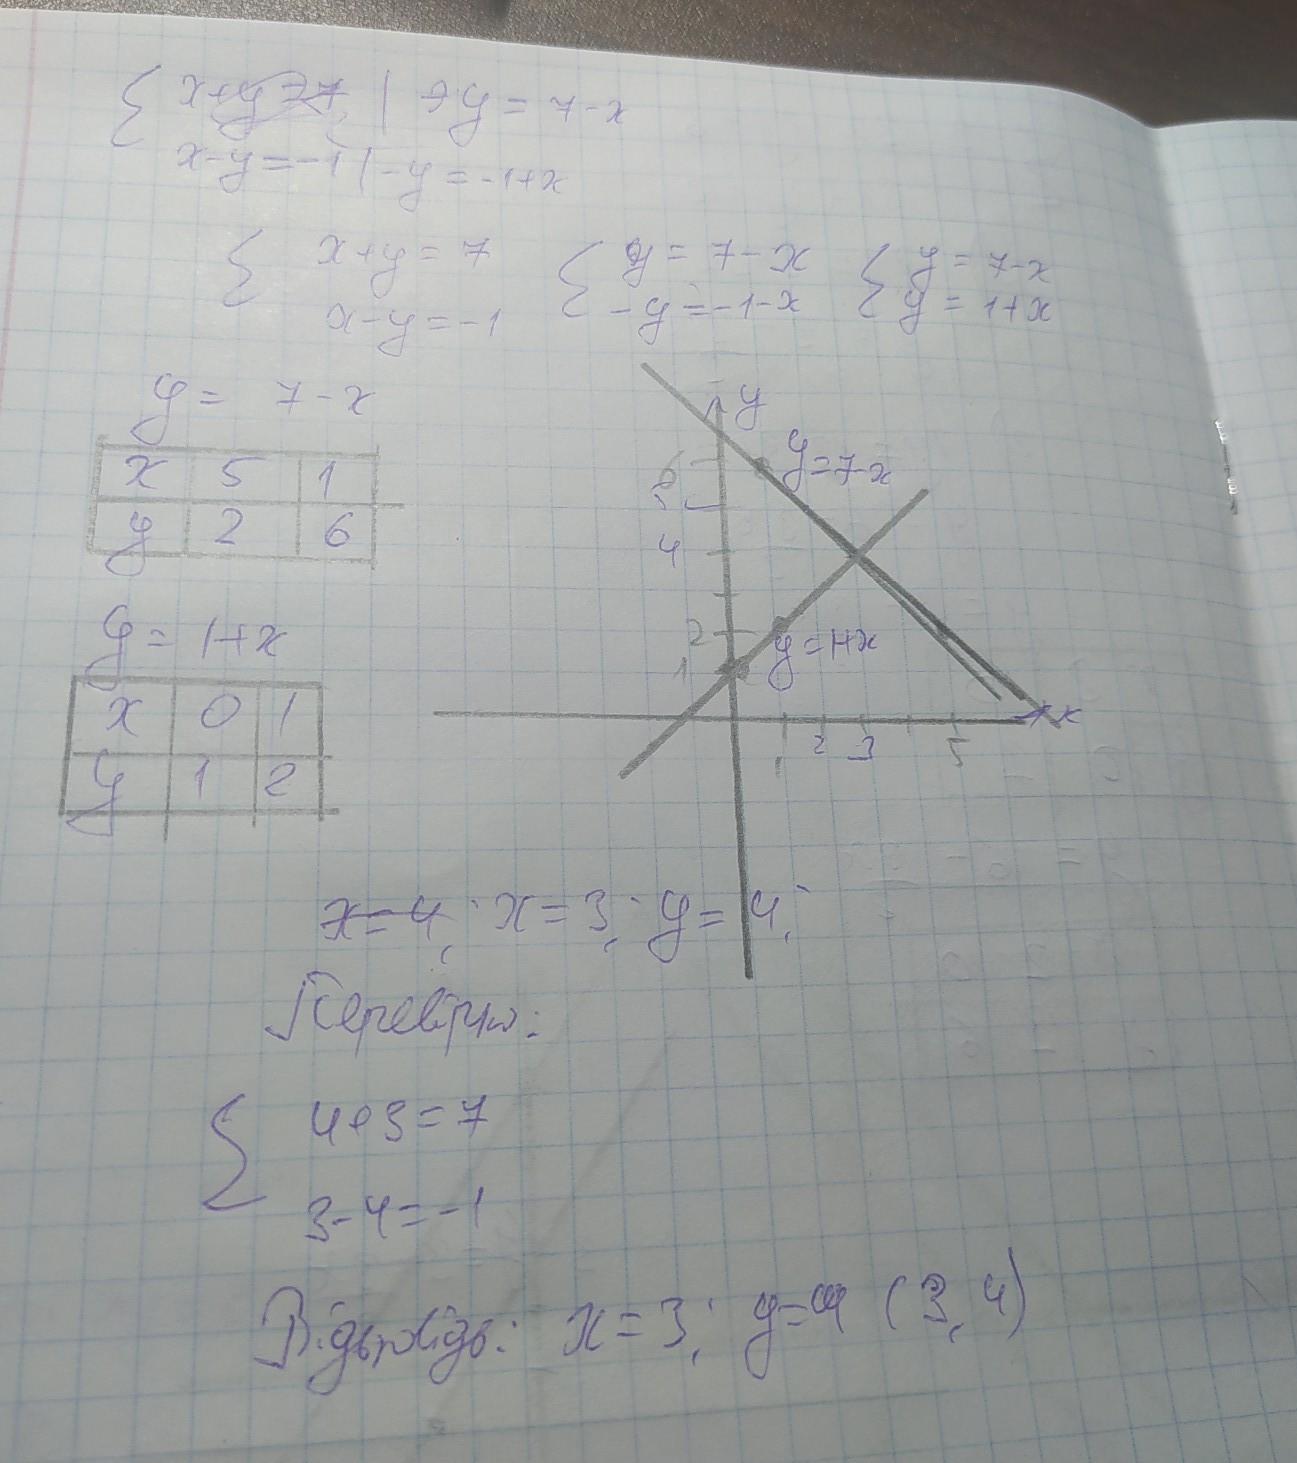 { x+y=7 | → y = 7-x
x-y=-1 | -y = -1+x
{ x+y=7 { y = 7-x { y = 7-x
x-y=-1 -y=-1-x y = 1+x
y = 7-x
x 5 1
y 2 6
y = 1+x
x 0 1
y 1 2
y
y=7-x
6
5
4
2
1
y=1+x
x
1 2 3 5
x=4; x=3; y=4;
Перевірка:
{ 4+3=7
3-4=-1
Відповідь: x=3; y=4 (3, 4)